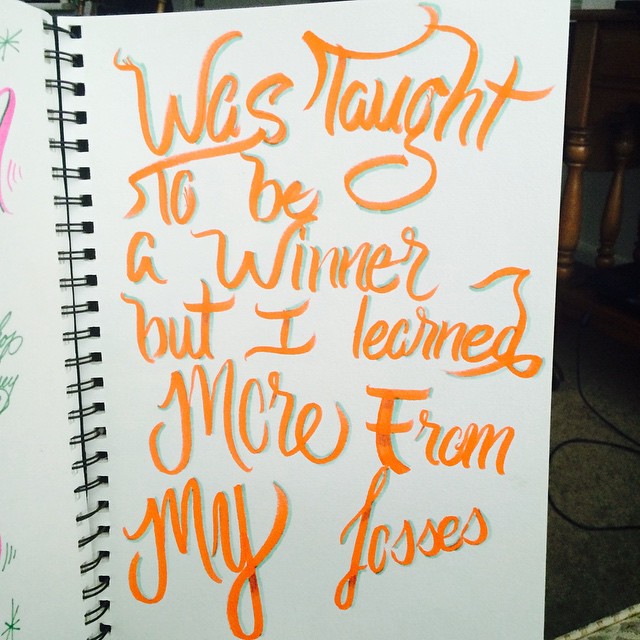 Was Taught
To be
a Winner
but I learned
More From
My Losses